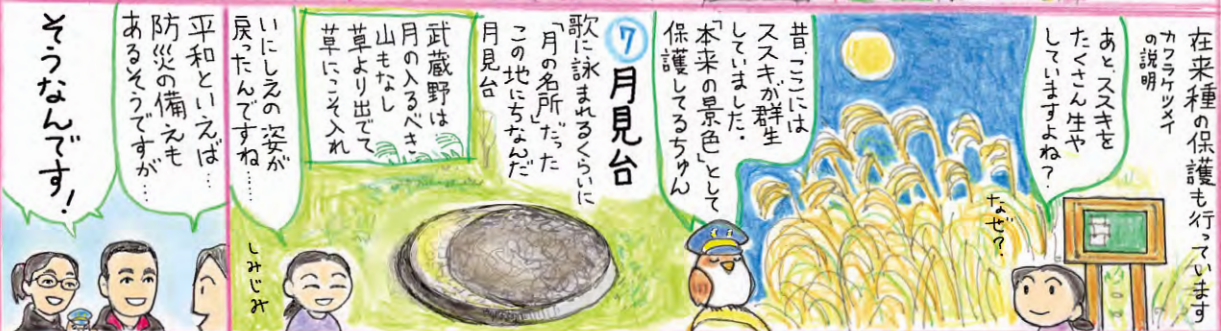 在来種の保護も行っています
カワラケツメイ
の説明
あと、ススキを
たくさん生や
していますよね?
なぜ?
昔、ここには
ススキが群生
していました。
「本来の景色」として
保護してるちゅん
⑦月見台
歌に詠まれるくらいに
「月の名所」だった
この地にちなんだ
月見台
武蔵野は
月の入るべき
山もなし
草より出でて
草にこそ入れ
いにしえの姿が
戻ったんですね……
しみじみ
平和といえば…
防災の備えも
あるそうですが…
そうなんです!